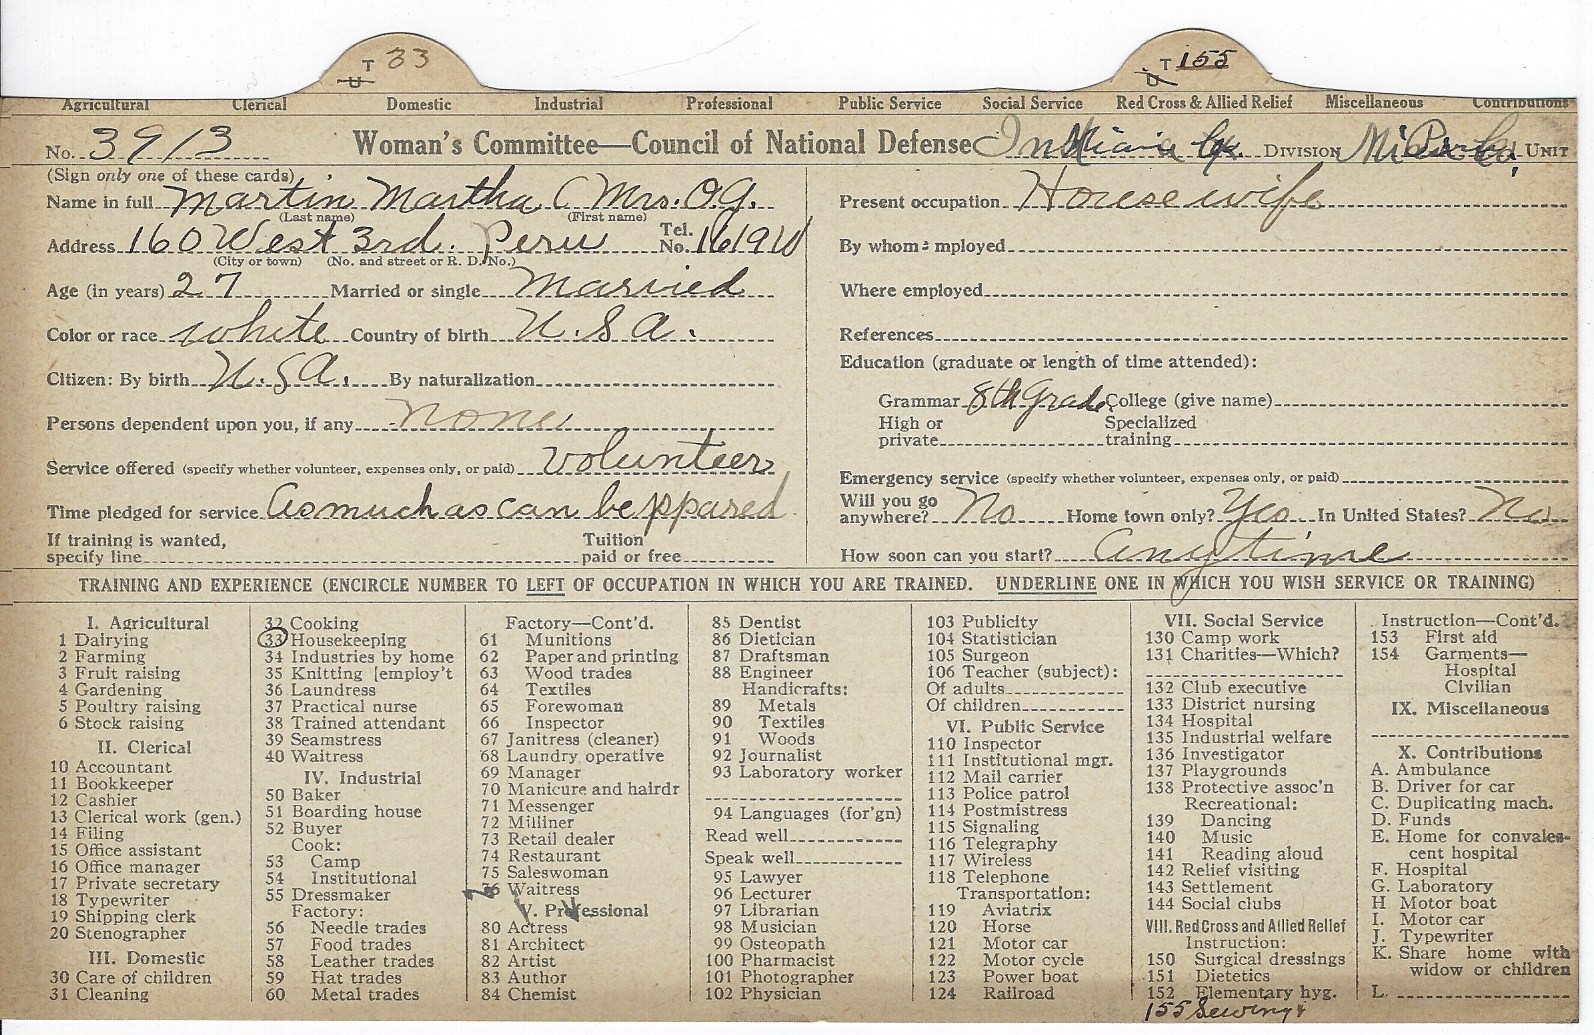 T 33
U
T 155
U
Agricultural Clerical Domestic Industrial Professional Public Service Social Service Red Cross & Allied Relief Miscellaneous Contributions
No. 3913 Woman's Committee—Council of National Defense Ind Miami Co. DIVISION Mi Peru Co. UNIT
(Sign only one of these cards)
Name in full Martin Martha (Mrs. O.G.
(Last name) (First name)
Address 160 West 3rd. Peru Tel. No. 1619W
(City or town) (No. and street or R. D. No.)
Age (in years) 27 Married or single Married
Color or race white Country of birth U.S.A.
Citizen: By birth U.S.A. By naturalization
Persons dependent upon you, if any none
Service offered (specify whether volunteer, expenses only, or paid) volunteer
Time pledged for service As much as can be sppared
If training is wanted,
specify line Tuition
paid or free
Present occupation Housewife
By whom employed
Where employed
References
Education (graduate or length of time attended):
Grammar 8th Grade College (give name)
High or
private Specialized
training
Emergency service (specify whether volunteer, expenses only, or paid)
Will you go
anywhere? No Home town only? Yes In United States? No
How soon can you start? Anytime
TRAINING AND EXPERIENCE (ENCIRCLE NUMBER TO LEFT OF OCCUPATION IN WHICH YOU ARE TRAINED. UNDERLINE ONE IN WHICH YOU WISH SERVICE OR TRAINING)
I. Agricultural
1 Dairying
2 Farming
3 Fruit raising
4 Gardening
5 Poultry raising
6 Stock raising
II. Clerical
10 Accountant
11 Bookkeeper
12 Cashier
13 Clerical work (gen.)
14 Filing
15 Office assistant
16 Office manager
17 Private secretary
18 Typewriter
19 Shipping clerk
20 Stenographer
III. Domestic
30 Care of children
31 Cleaning
32 Cooking
33 Housekeeping
34 Industries by home
35 Knitting [employ't
36 Laundress
37 Practical nurse
38 Trained attendant
39 Seamstress
40 Waitress
IV. Industrial
50 Baker
51 Boarding house
52 Buyer
Cook:
53 Camp
54 Institutional
55 Dressmaker
Factory:
56 Needle trades
57 Food trades
58 Leather trades
59 Hat trades
60 Metal trades
Factory—Cont'd.
61 Munitions
62 Paper and printing
63 Wood trades
64 Textiles
65 Forewoman
66 Inspector
67 Janitress (cleaner)
68 Laundry operative
69 Manager
70 Manicure and hairdr
71 Messenger
72 Milliner
73 Retail dealer
74 Restaurant
75 Saleswoman
76 Waitress
V. Professional
80 Actress
81 Architect
82 Artist
83 Author
84 Chemist
85 Dentist
86 Dietician
87 Draftsman
88 Engineer
Handicrafts:
89 Metals
90 Textiles
91 Woods
92 Journalist
93 Laboratory worker
94 Languages (for'gn)
Read well
Speak well
95 Lawyer
96 Lecturer
97 Librarian
98 Musician
99 Osteopath
100 Pharmacist
101 Photographer
102 Physician
103 Publicity
104 Statistician
105 Surgeon
106 Teacher (subject):
Of adults
Of children
VI. Public Service
110 Inspector
111 Institutional mgr.
112 Mail carrier
113 Police patrol
114 Postmistress
115 Signaling
116 Telegraphy
117 Wireless
118 Telephone
Transportation:
119 Aviatrix
120 Horse
121 Motor car
122 Motor cycle
123 Power boat
124 Railroad
VII. Social Service
130 Camp work
131 Charities—Which?
132 Club executive
133 District nursing
134 Hospital
135 Industrial welfare
136 Investigator
137 Playgrounds
138 Protective assoc'n
Recreational:
139 Dancing
140 Music
141 Reading aloud
142 Relief visiting
143 Settlement
144 Social clubs
VIII. Red Cross and Allied Relief
Instruction:
150 Surgical dressings
151 Dietetics
152 Elementary hyg.
155 Sewing
Instruction—Cont'd.
153 First aid
154 Garments—
Hospital
Civilian
IX. Miscellaneous
X. Contributions
A. Ambulance
B. Driver for car
C. Duplicating mach.
D. Funds
E. Home for convales-
cent hospital
F. Hospital
G. Laboratory
H Motor boat
I. Motor car
J. Typewriter
K. Share home with
widow or children
L.